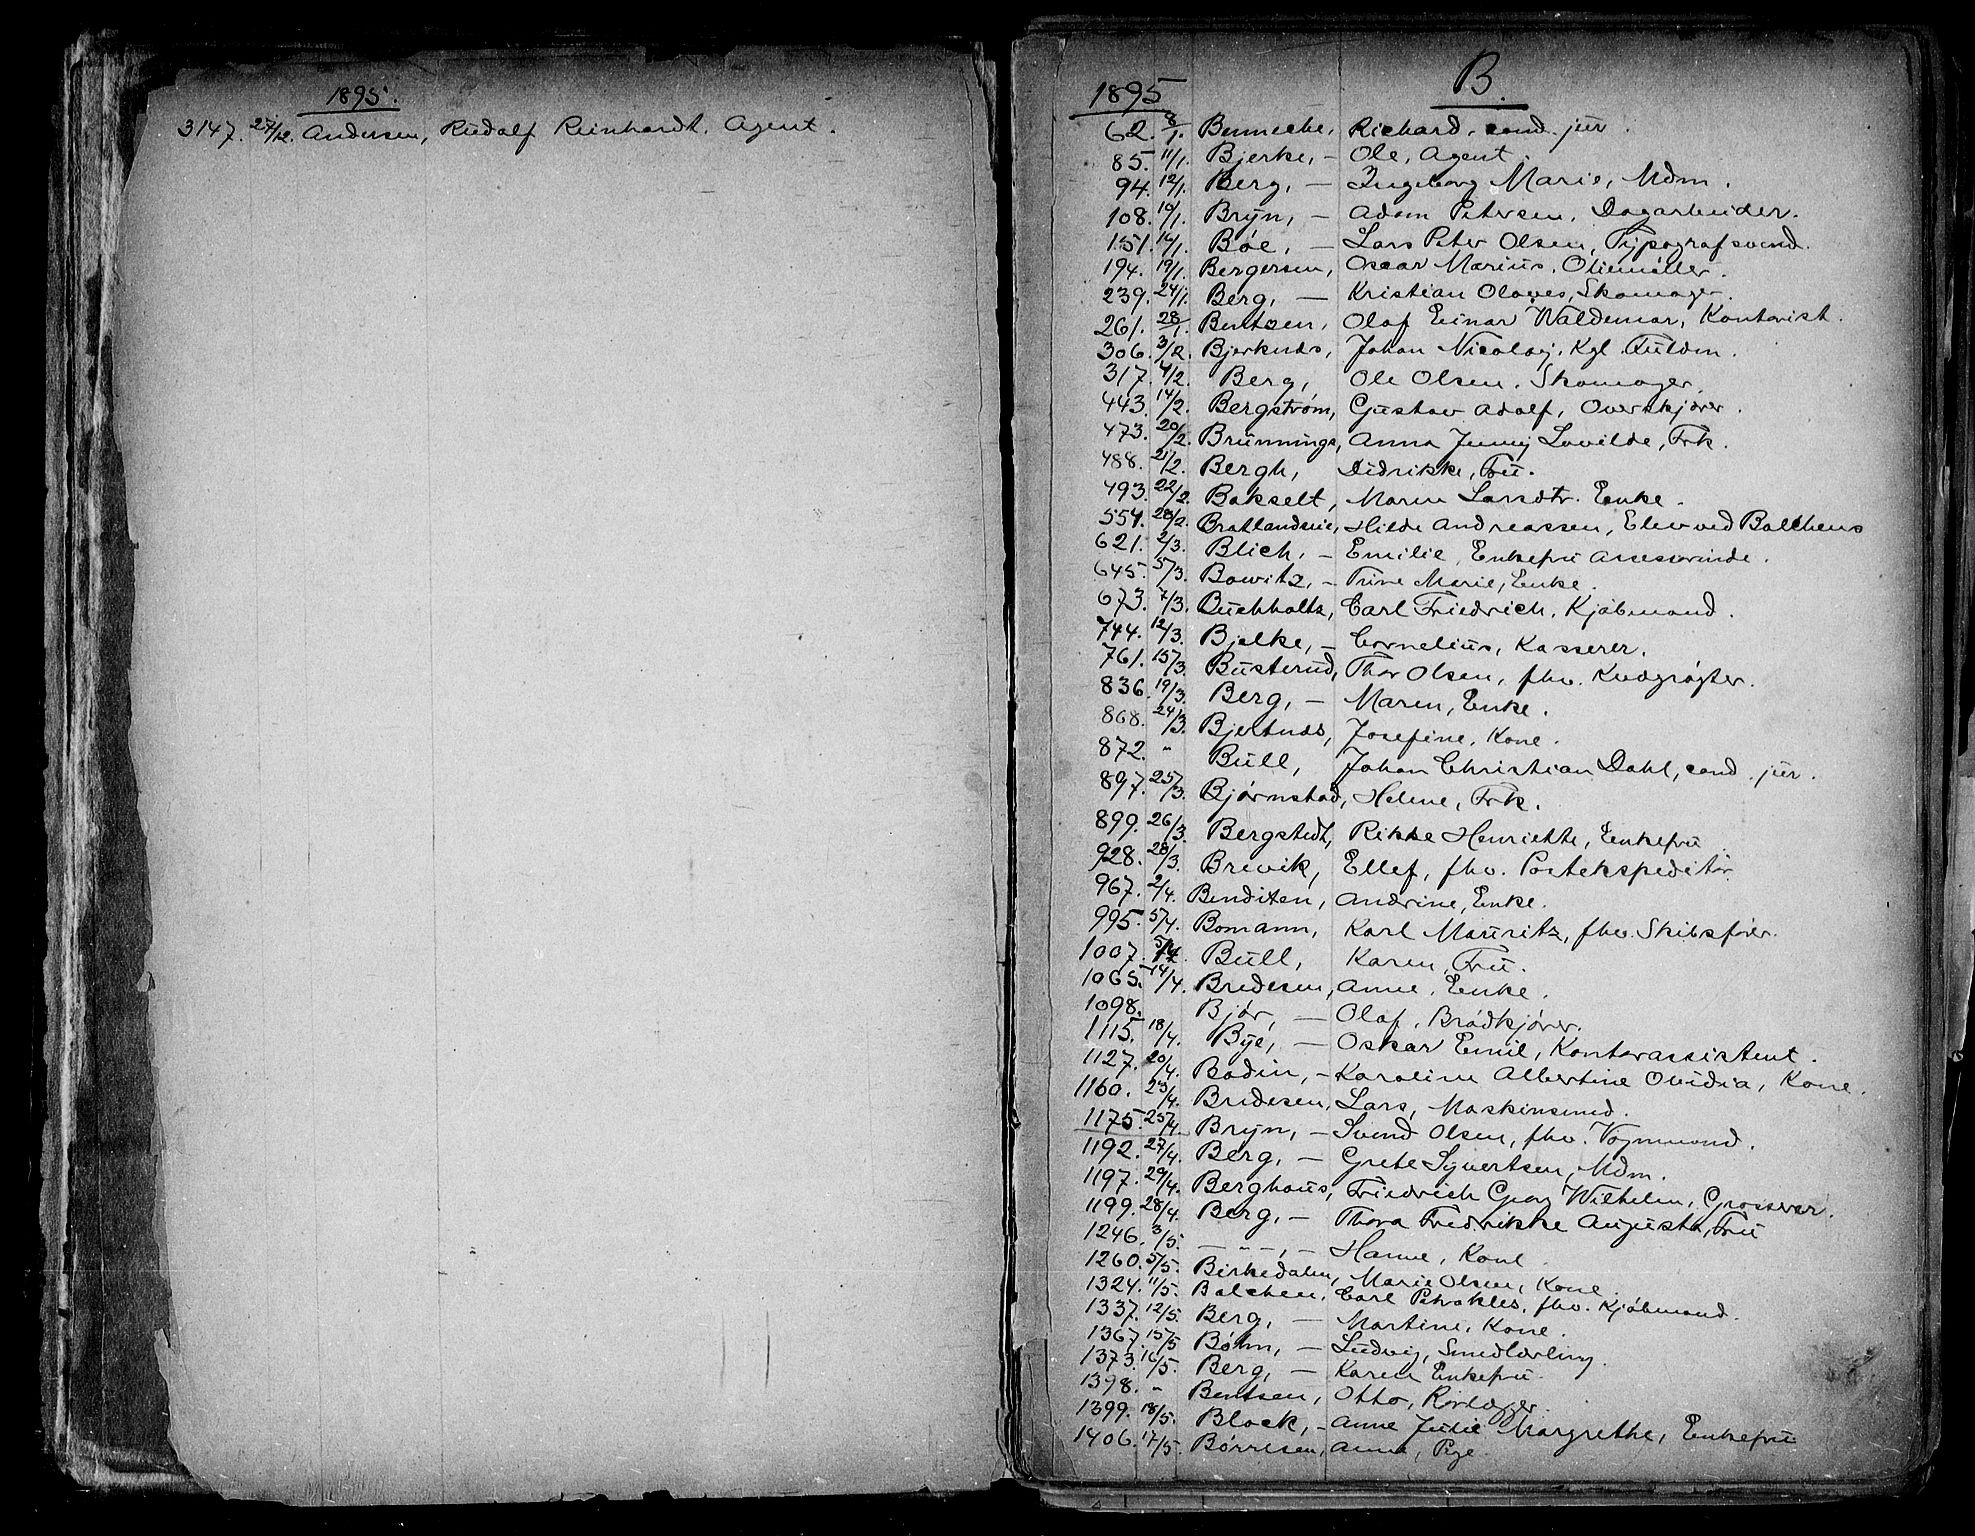 1895.
3147. 27/12. Andersen, Rudolf Reinhardt. Agent.
B.
1895
62. 8/1. Bennecke, Richard, cand. jur.
85. 11/1. Bjerke, – Ole, Agent.
94. 12/1. Berg, – Ingeborg Marie, Mdm.
108. 10/1. Bryn, – Adam Petersen, Dagarbeider.
151. 14/1. Bøe, – Lars Peter Olsen, Typografsvend.
194. 19/1. Bergersen, Oscar Marius, Oliemøller.
239. 24/1. Berg, – Kristian Olaves, Skomager.
261. 28/1. Bentsen, Olaf Einar Waldemar, Kontorist.
306. 3/2. Bjerknes, Johan Nicolay, Kgl. Fuldm.
317. 4/2. Berg, Ole Olsen, Skomager.
443. 14/2. Bergstrøm, Gustav Adolf, Overskjærer.
473. 20/2. Brunnings, Anna Jenny Lovilde, Frk.
488. 21/2. Bergh, Didrikke, Fru.
493. 22/2. Bakselt, Maren Larsdtr. Enke.
554. 28/2. Bratlandseie, Hilde Andreassen, Elev ved Balchens
621. 2/3. Blich, – Emilie, Enkefru Assessorinde.
645. 5/3. Bowitz, – Trine Marie, Enke.
673. 7/3. Buchholtz, Carl Friedrich, Kjøbmand.
744. 12/3. Bjelke, – Cornelius, Kasserer.
761. 15/3. Busterud, Thor Olsen, fhv. Kvægrøgter.
836. 19/3. Berg, – Maren, Enke.
868. 24/3. Bjertnes, Josefine, Kone.
872. " Bull, Johan Christian Dahl, cand. jur.
897. 25/3. Bjørnstad, Helene, Frk.
899. 26/3. Bergstedt, Rikke Henriette, Enkefru
928. 28/3. Brevik, Ellef, fhv. Postekspeditør
967. 2/4. Benditzen, Andrine, Enke.
995. 5/4. Bomann, Karl Mauritz, fhv. Skibsfører.
1007. 5/4. Bull, Karen, Fru.
1065. 14/4. Bredesen, Anne, Enke.
1098. Bjør, – Olaf, Brødkjører.
1115. 18/4. Bye, – Oskar Emil, Kontorassistent.
1127. 20/4. Bodin, – Karoline Albertine Ovidia, Kone.
1160. 23/4. Bredesen, Lars, Maskinsmed.
1175. 25/4. Bryn, – Svend Olsen, fhv. Vognmand.
1192. 27/4. Berg, – Grete Syvertsen, Mdm.
1197. 29/4. Berghaus, Friedrich Georg Wilhelm, Grosserer.
1199. 28/4. Berg, – Thora Fredrikke Augusta, Fru
1246. 3/5. – " –, – Hanne, Kone
1260. 5/5. Birkedalen, Marie Olsen, Kone.
1324. 11/5. Balchen, Carl Patrokles, fhv. Kjøbmand.
1337. 12/5. Berg, – Martine, Kone.
1367 15/5 Bøhm, – Ludvig, Smedlærling.
1373. 16/5. Berg, – Karen Enkefru.
1398. " Bentsen, Otto, Rørlægger.
1399. 18/5. Block, – Anne Julie Margrethe, Enkefru
1406. 17/5. Børresen, Anna, Pige.